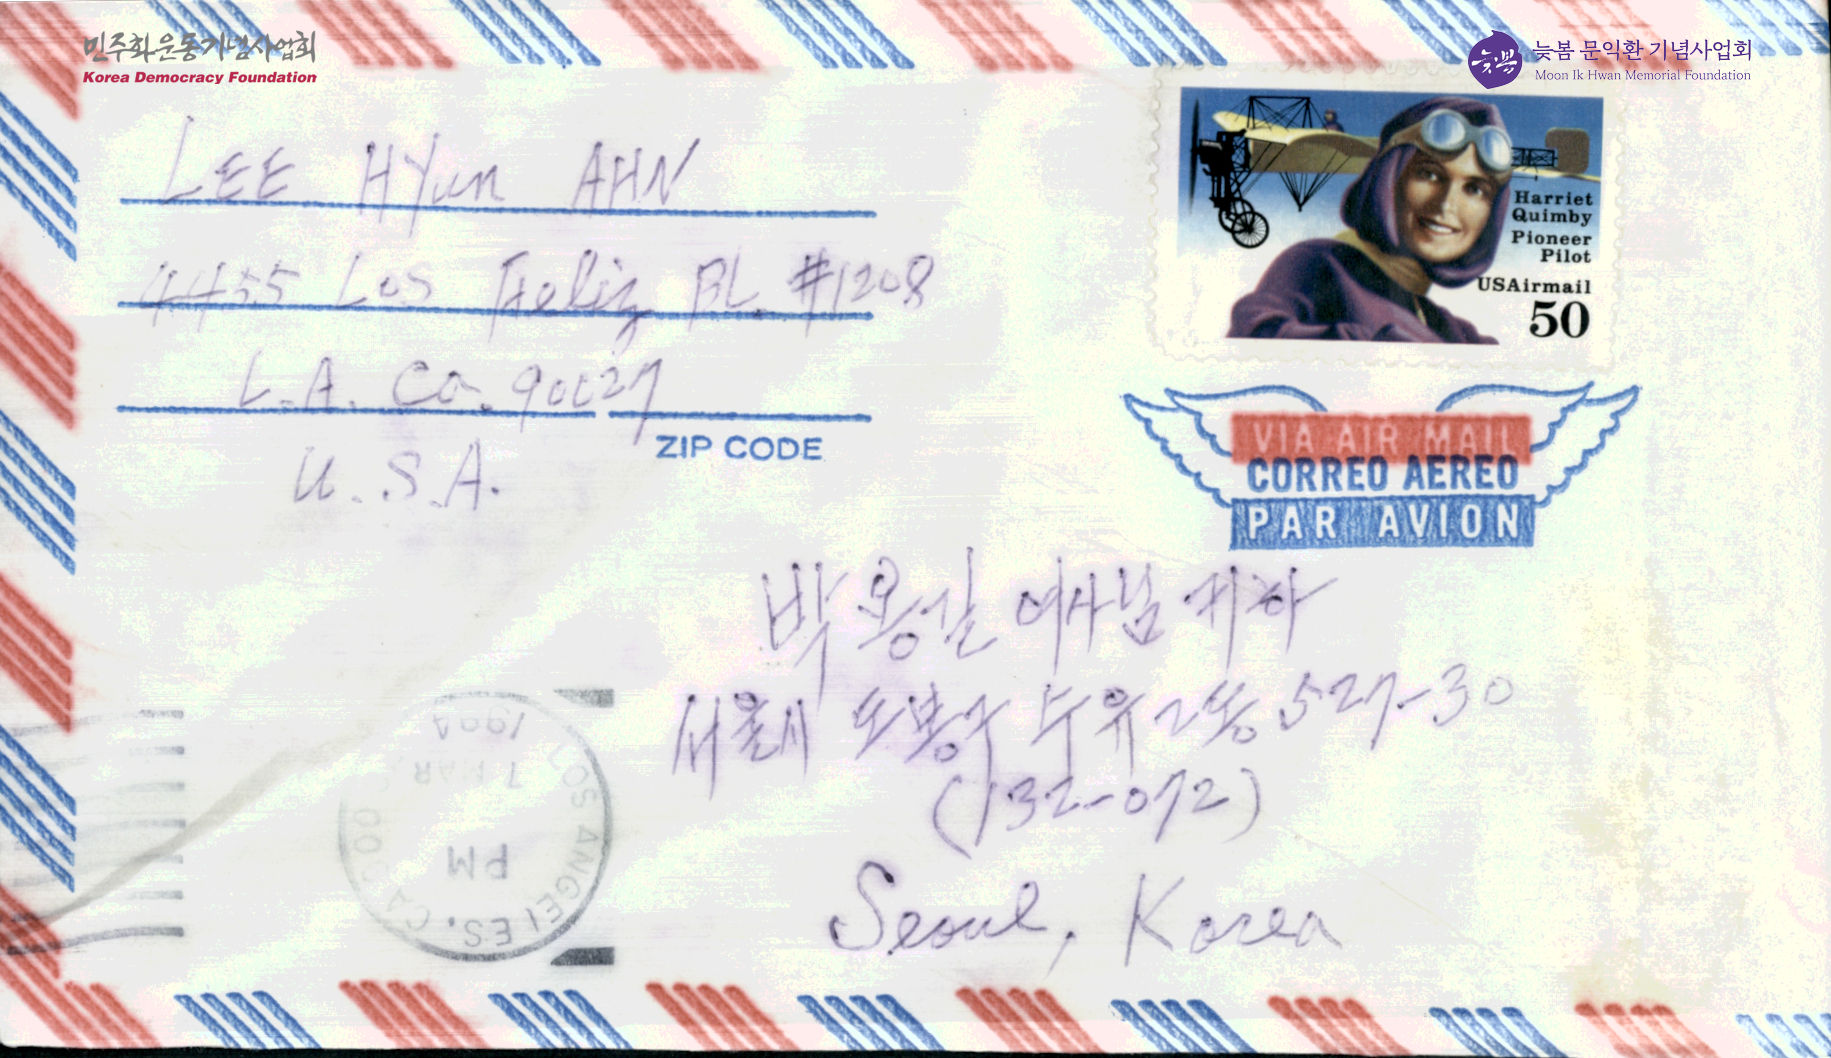 민주화운동기념사업회
Korea Democracy Foundation
늦봄
늦봄 문익환 기념사업회
Moon Ik Hwan Memorial Foundation
LEE HYun AHN
4455 Los Feliz BL. #1208
L.A. Ca. 90027
ZIP CODE
U.S.A.
Harriet
Quimby
Pioneer
Pilot
USAirmail
50
VIA AIR MAIL
CORREO AEREO
PAR AVION
박용길 여사님 귀하
서울시 도봉구 수유2동 527-30
(132-072)
Seoul, Korea
LOS ANGELES, CA
PM
7 MAR
1994